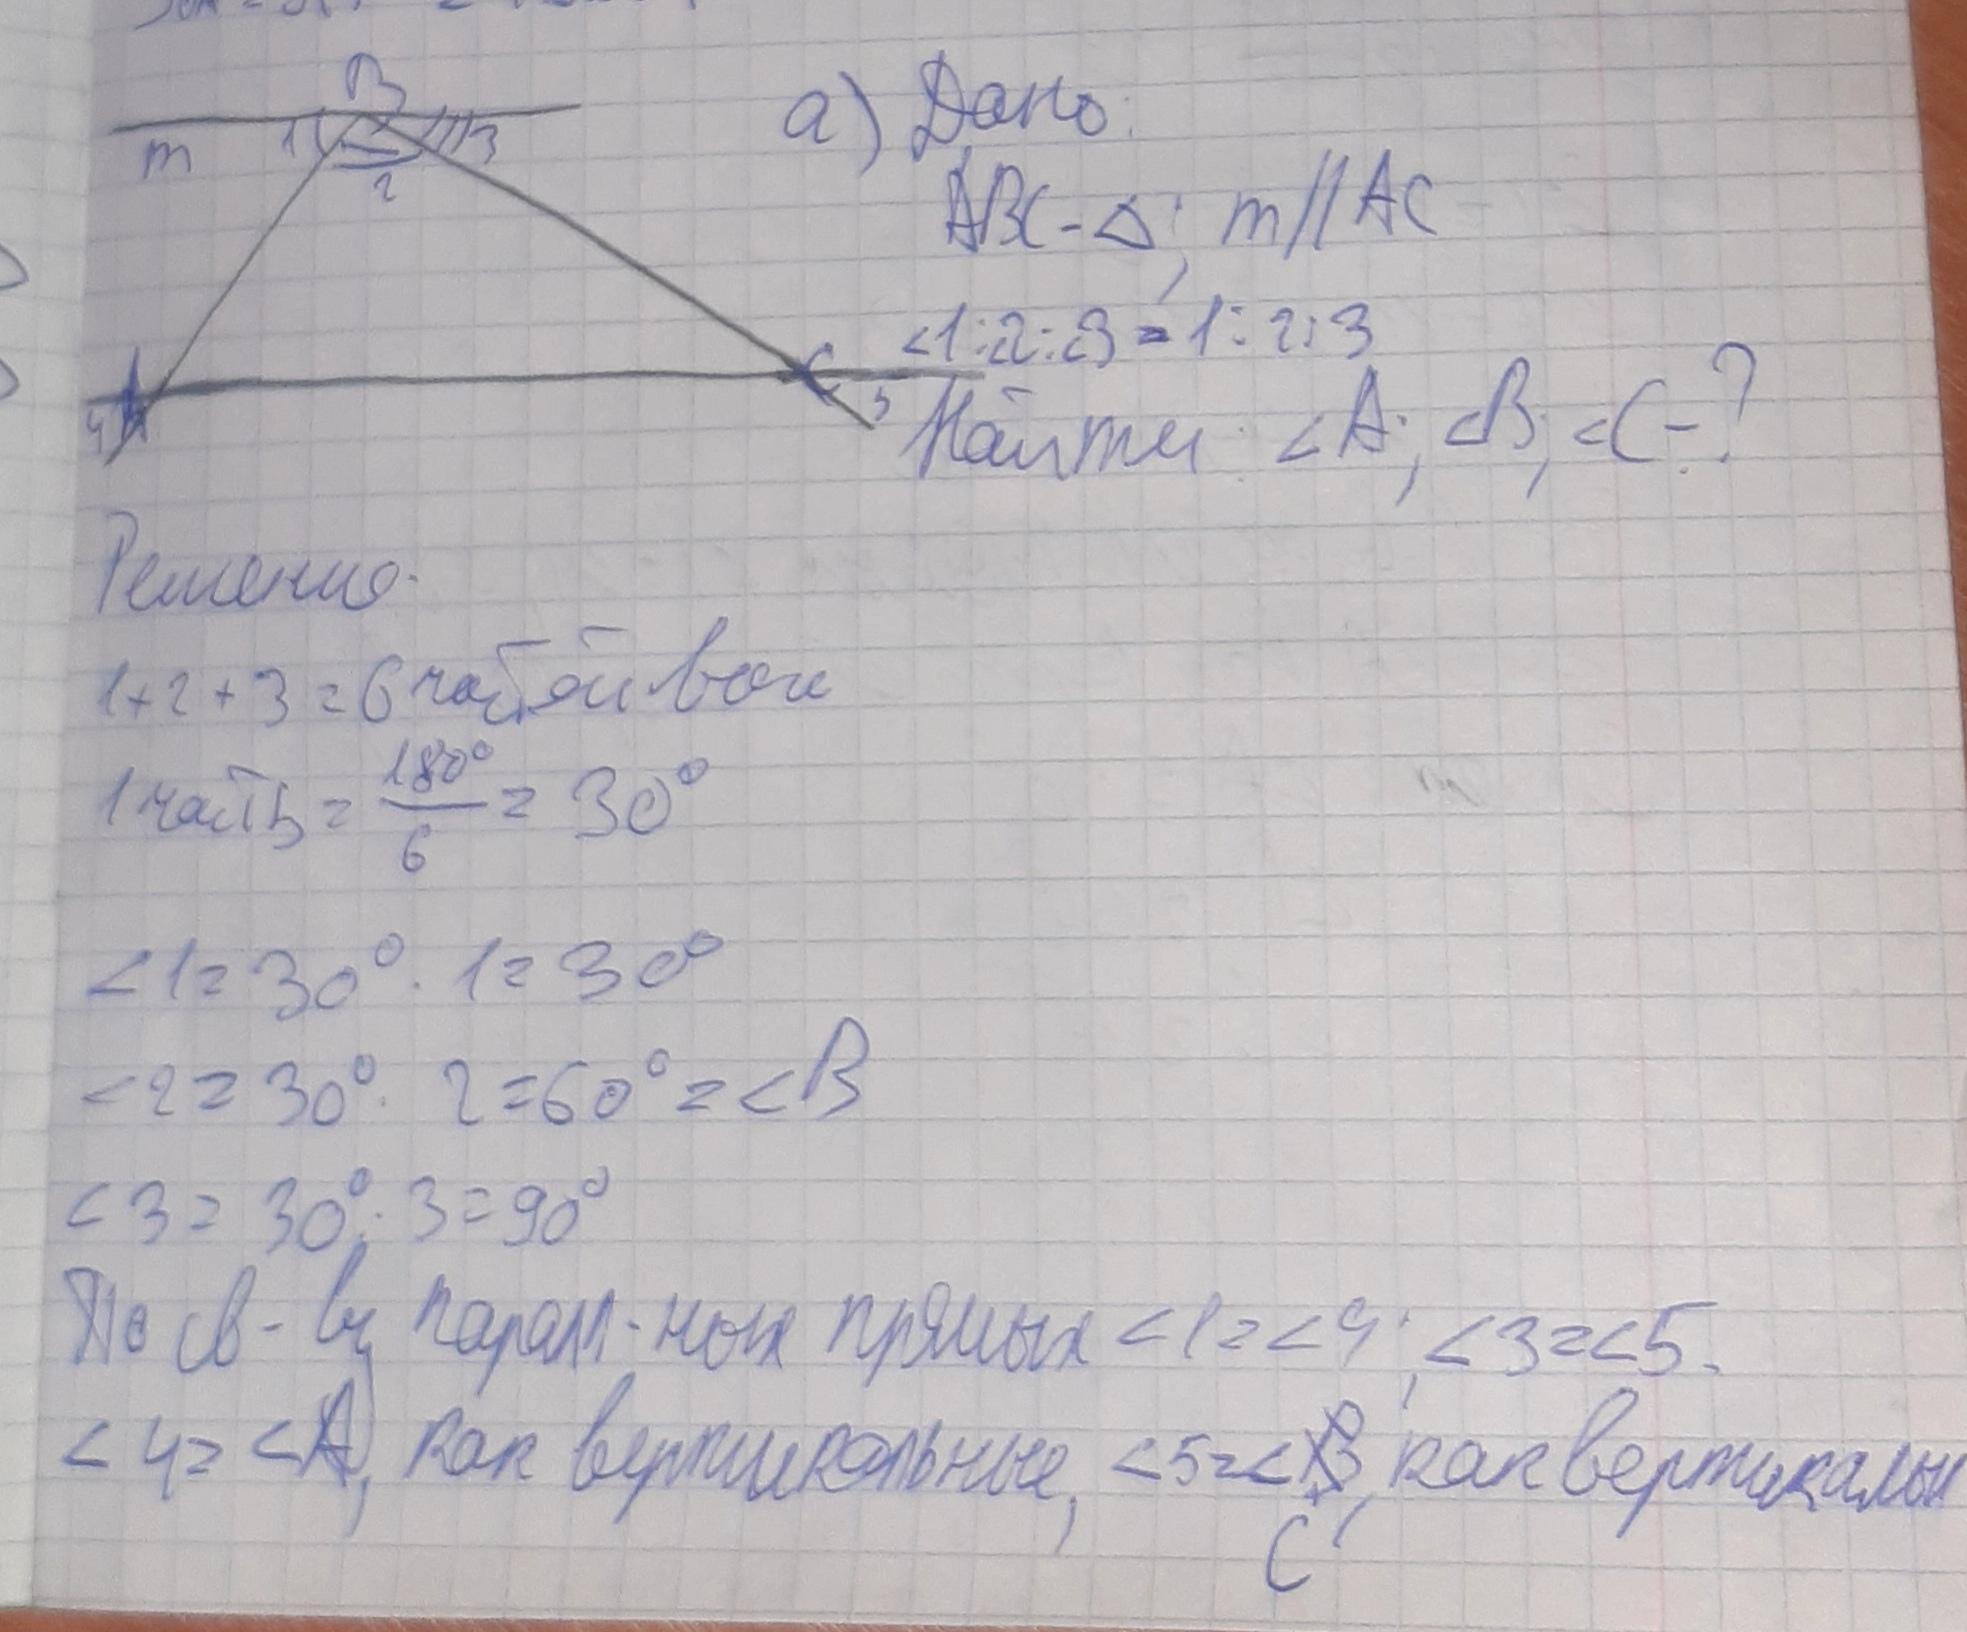 B
m 1 3
2
4 A C 5
а) Дано:
ABC - Δ; m//AC
<1:2:3 = 1:2:3
Найти: <A; <B; <C - ?
Решение.
1+2+3 = 6 частей
1 часть = 180°/6 = 30°
<1 = 30° · 1 = 30°
<2 = 30° · 2 = 60° = <B
<3 = 30° · 3 = 90°
По св-ву парал-ных прямых <1 = <4; <3 = <5.
<4 = <A, как вертикальные, <5 = <B, как вертикальн
C